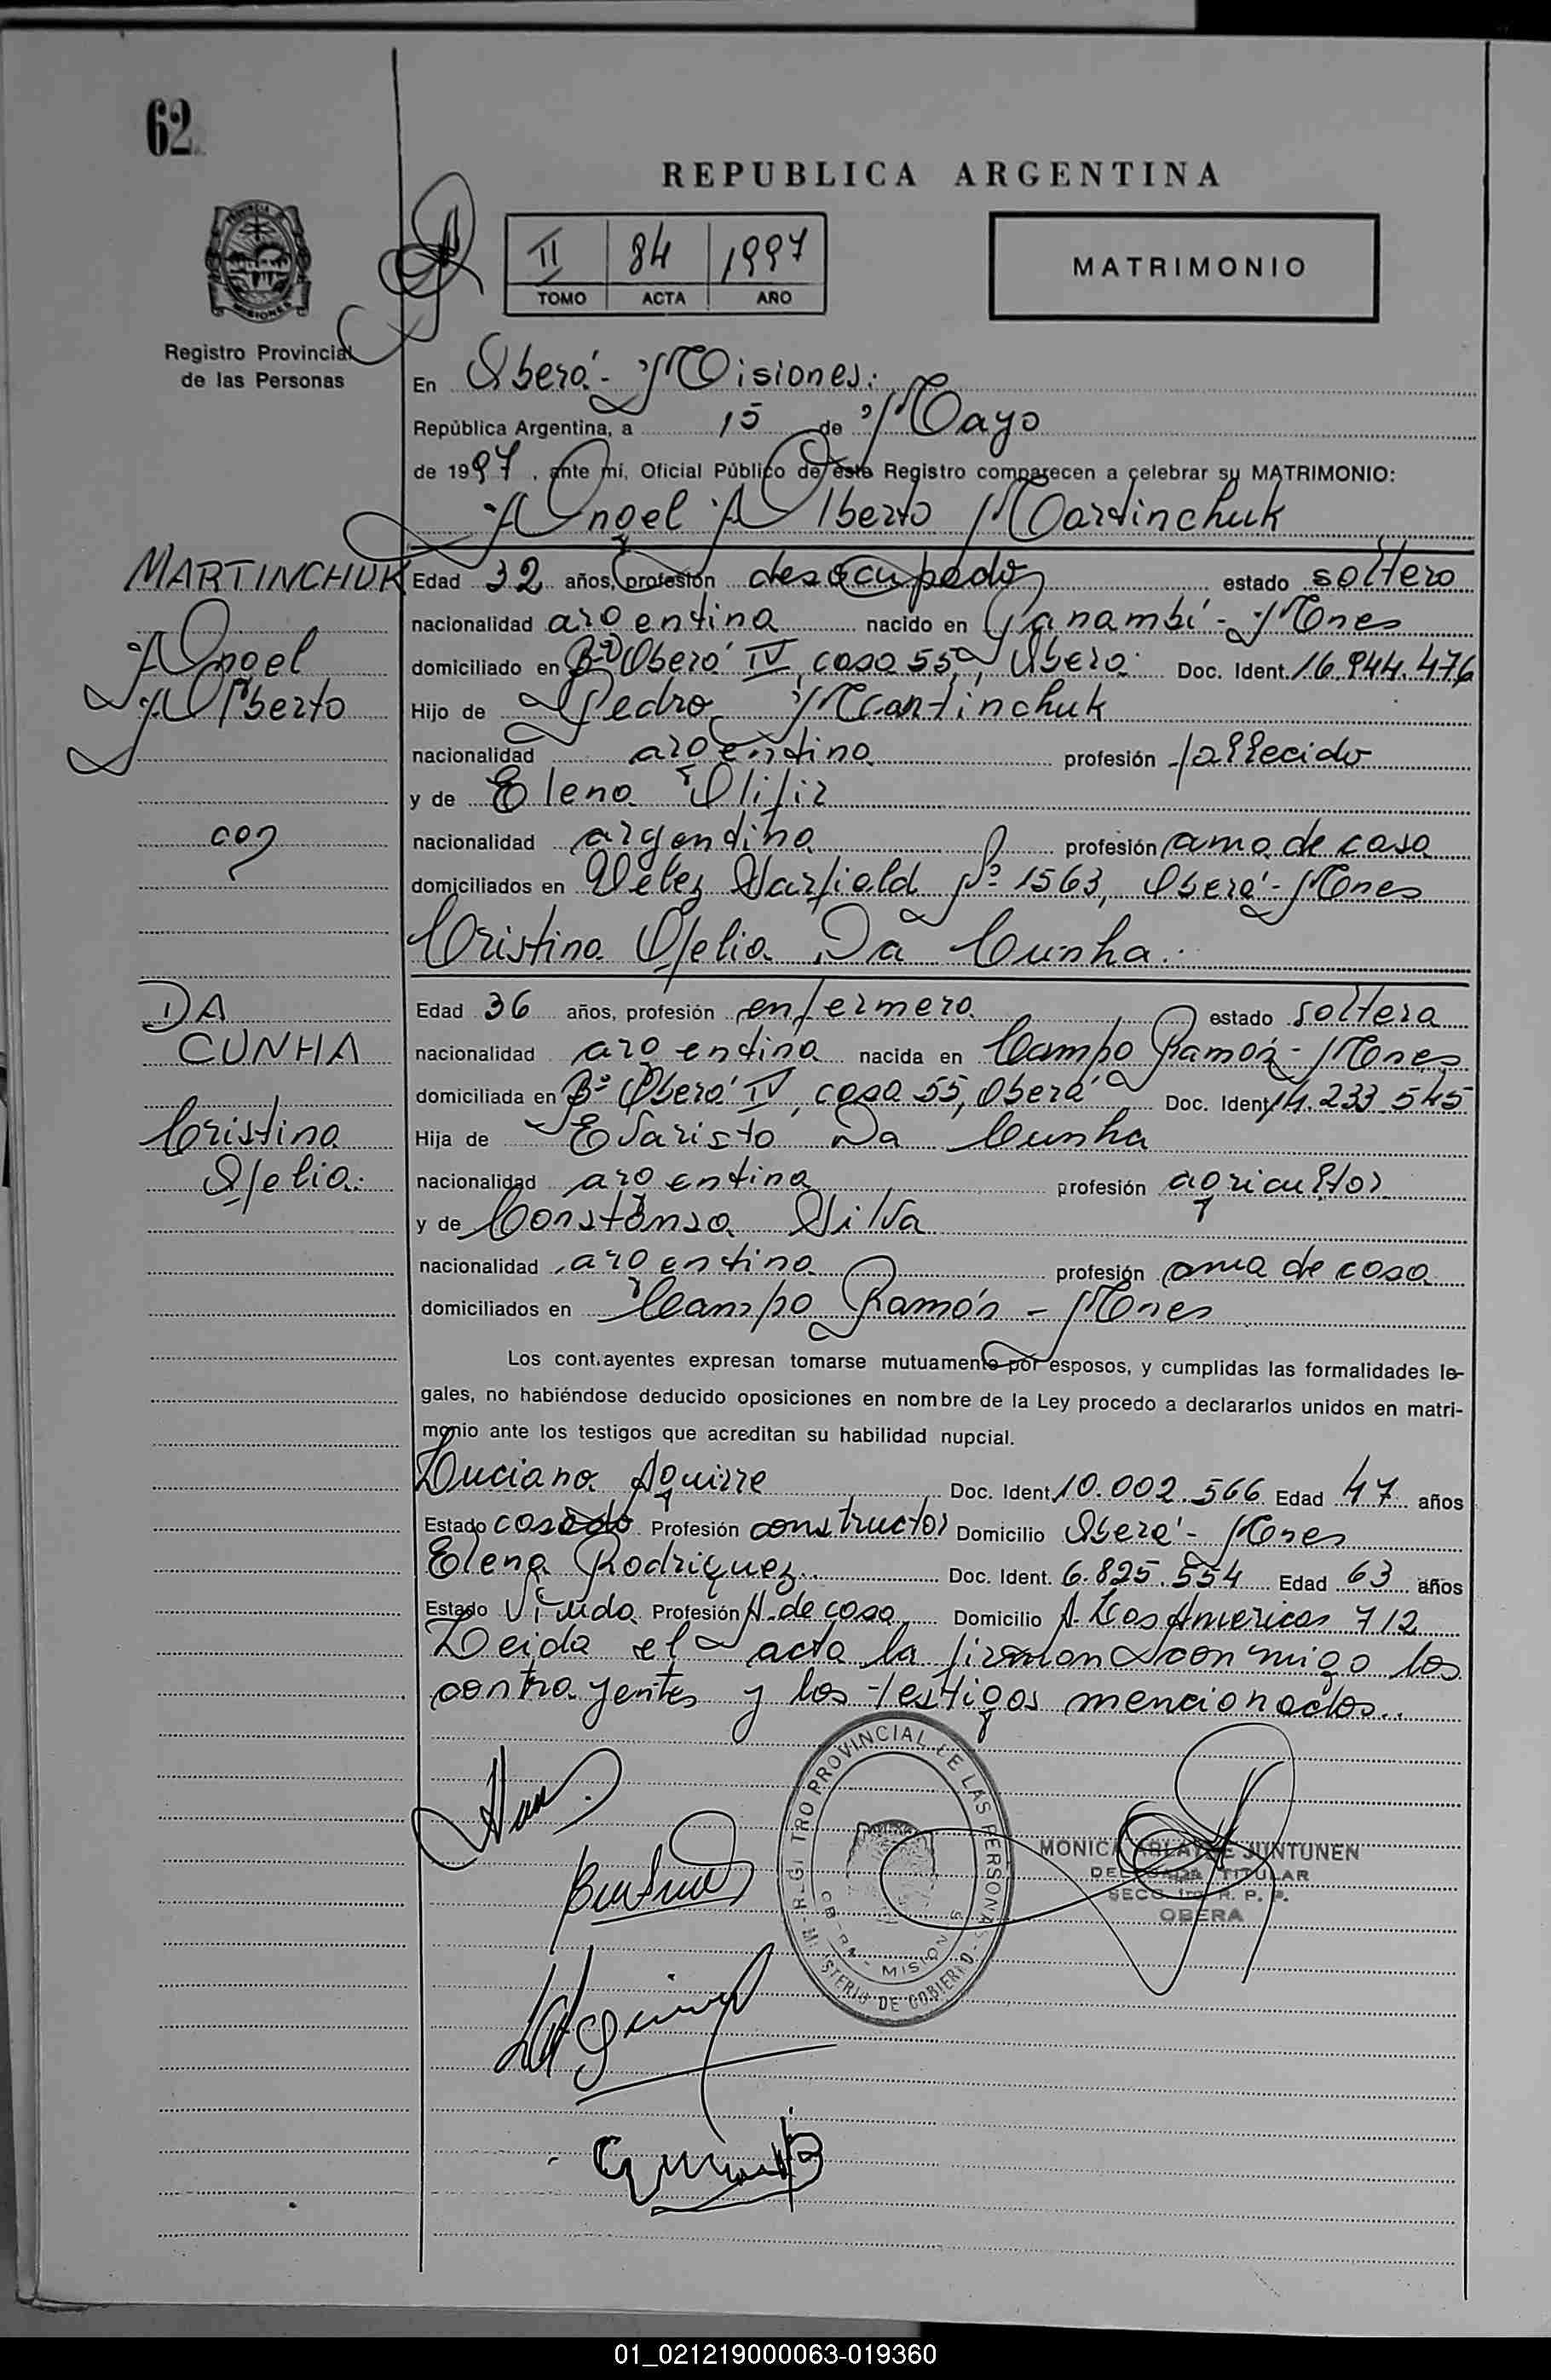 62
REPUBLICA ARGENTINA
II 84 1997
TOMO ACTA AÑO
MATRIMONIO
PROVINCIA DE
MISIONES
Registro Provincial
de las Personas
En Oberá - Misiones.
República Argentina, a 15 de Mayo
de 1997, ante mí, Oficial Público de este Registro comparecen a celebrar su MATRIMONIO:
Angel Alberto Martinchuk
MARTINCHUK
Edad 32 años, profesión desocupado estado soltero
nacionalidad argentina nacido en Panambí - Mnes
Angel
domiciliado en Bº Oberá IV, casa 55, Oberá Doc. Ident. 16.944.476
Alberto
Hijo de Pedro Martinchuk
nacionalidad argentina profesión fallecido
y de Elena Olifiz
con
nacionalidad argentina profesión ama de casa
domiciliados en Velez Sarfield Nº 1563, Oberá - Mnes
Cristina Ofelia Da Cunha.
DA
Edad 36 años, profesión enfermera estado soltera
CUNHA
nacionalidad argentina nacida en Campo Ramón - Mnes
domiciliada en Bº Oberá IV, casa 55, Oberá Doc. Ident. 14.233.545
Cristina
Hija de Evaristo Da Cunha
Ofelia.
nacionalidad argentina profesión agricultor
y de Constansa Silva
nacionalidad argentina profesión ama de casa
domiciliados en Campo Ramón - Mnes
Los cont.ayentes expresan tomarse mutuamente por esposos, y cumplidas las formalidades le-
gales, no habiéndose deducido oposiciones en nombre de la Ley procedo a declararlos unidos en matri-
monio ante los testigos que acreditan su habilidad nupcial.
Luciano Aguirre Doc. Ident. 10.002.566 Edad 47 años
Estado casado Profesión constructor Domicilio Oberá - Mnes
Elena Rodriguez Doc. Ident. 6.825.554 Edad 63 años
Estado Viuda Profesión A. de casa Domicilio A. Las Americas 712
Leida el acta la firman conmigo los
contrayentes y los testigos mencionados..
REGISTRO PROVINCIAL DE LAS PERSONAS
OBERA - MISIONES
MINISTERIO DE GOBIERNO
MONICA JUNTUNEN
DELEGADA TITULAR
SECC. 1ra. R. P. P.
OBERA
01_021219000063-019360